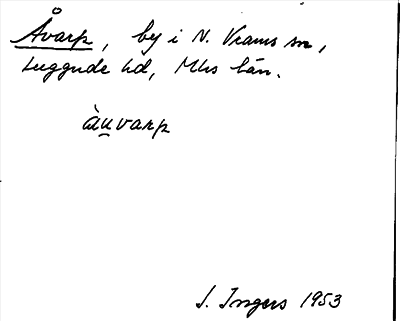 Åvarp, by i N. Vrams sn,
Luggude hd, Mlhs län.
àu̯varp
I. Ingers 1953